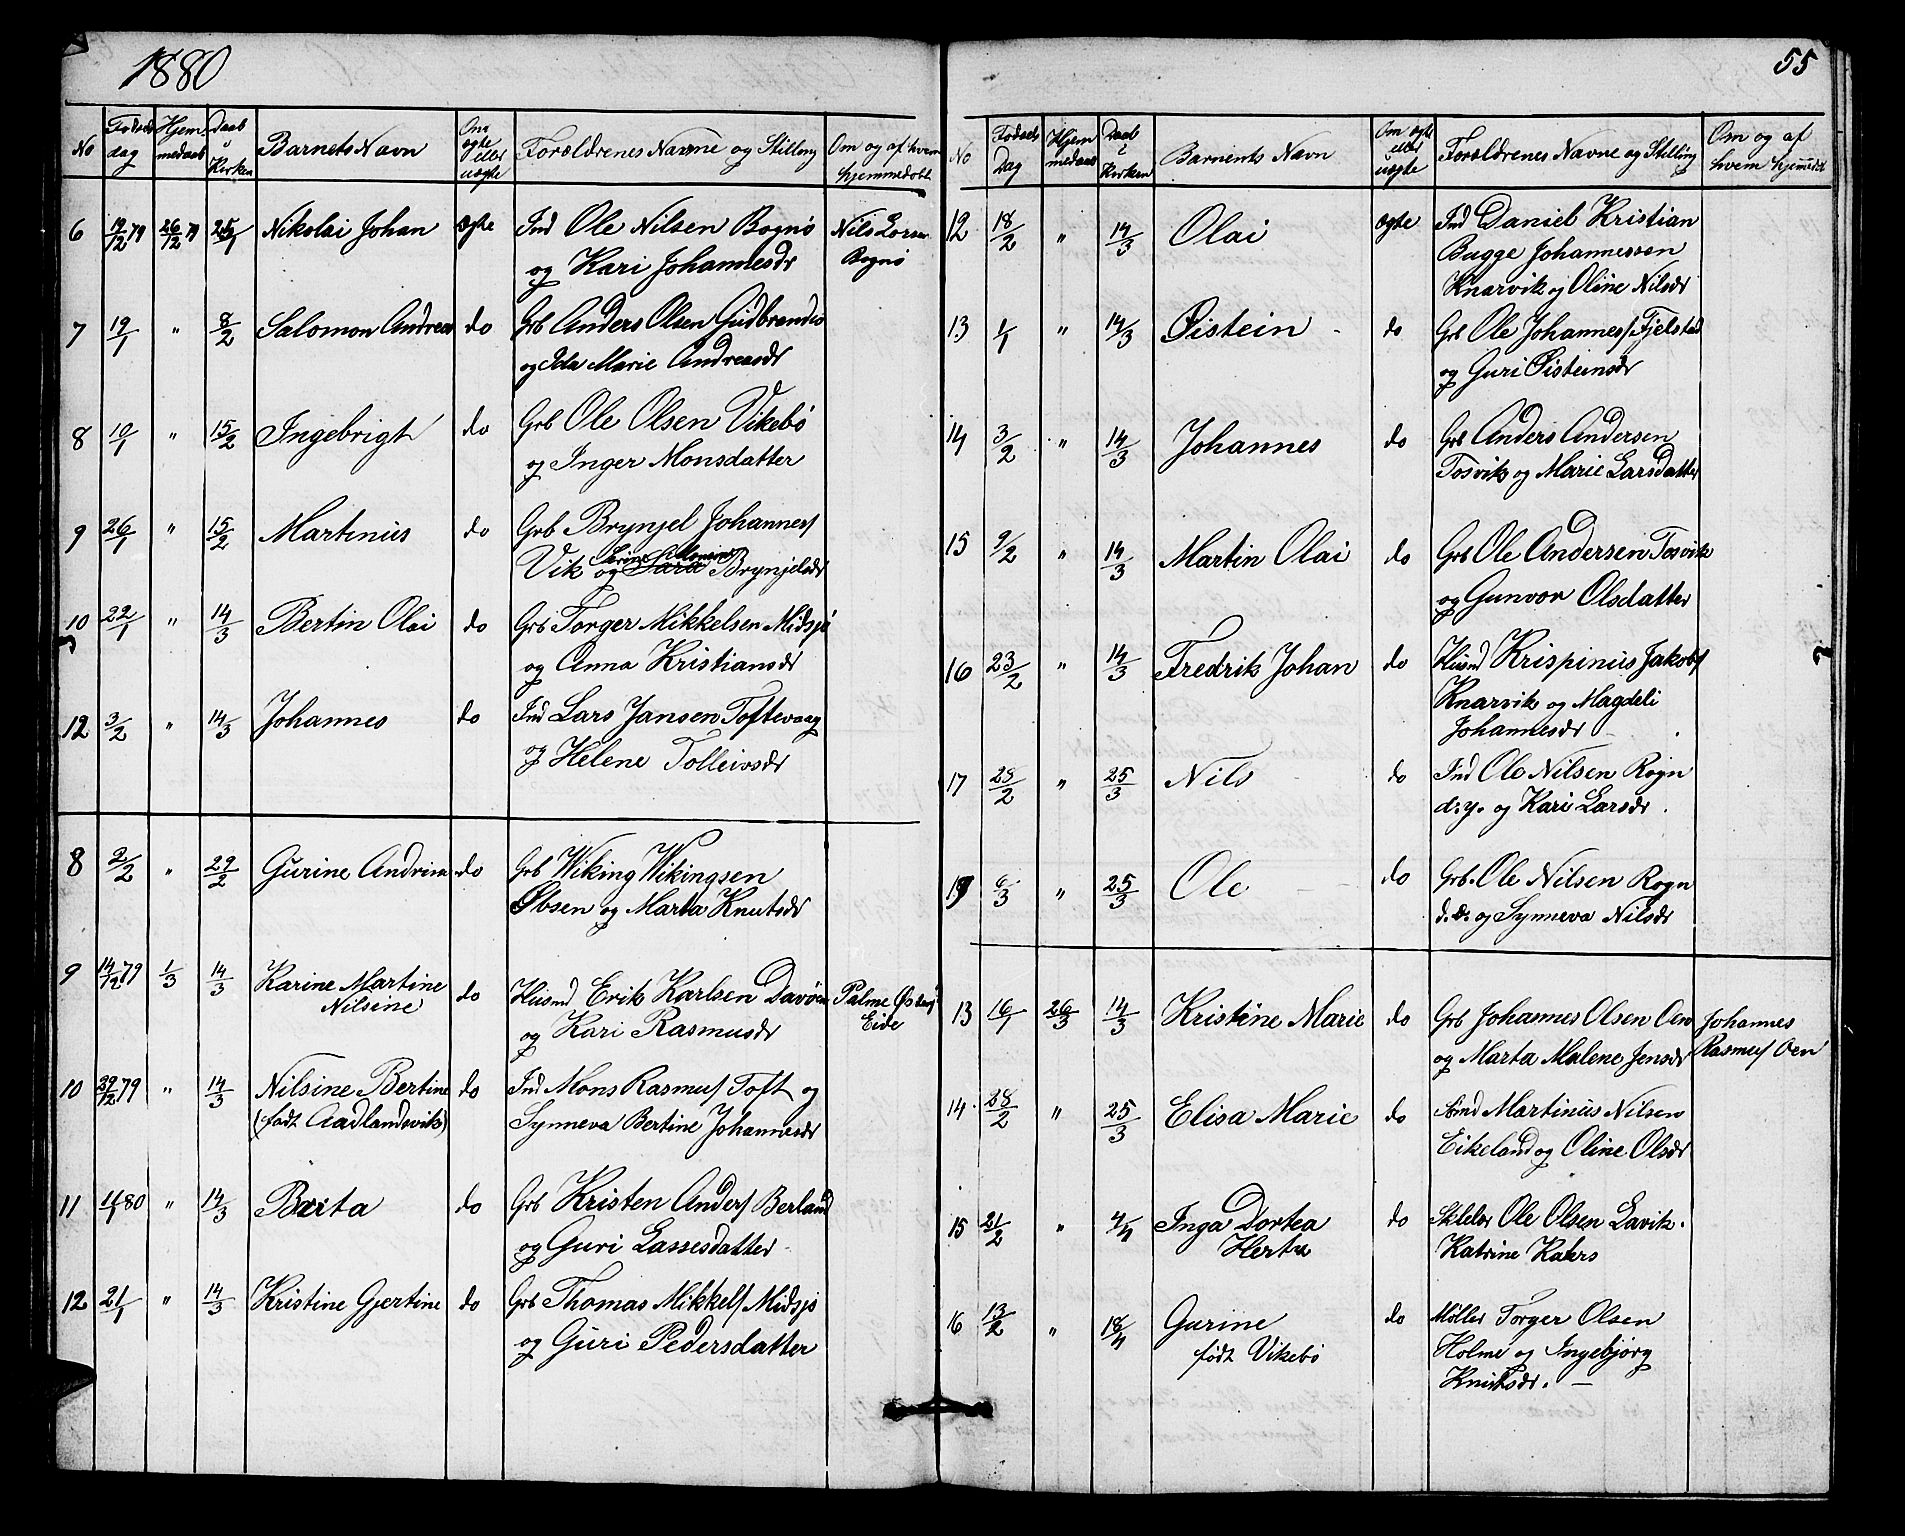 1880
No Fødsels dag Hjem medaab Daab i Kirken Barnets Navn Om ægte eller uægte Forældrenes Navne og Stilling Om og af hvem hjemmedøbt
6 19/12 79 26/12 79 25/1 Nikolai Johan ægte Ind Ole Nilsen Bognø Nils Lorns.
og Kari Johannesdr Bognø
7 19/1 " 8/2 Salomon Andreas do Grb Anders Olsen Gudbrands
og Ida Marie Andreasdr
8 10/1 " 15/2 Ingebrigt do Grb Ole Olsen Vikebø
og Inger Monsdatter
9 26/1 " 15/2 Martinus do Grb Brynjel Johannes/
Vik og Brynjelsdr
10 22/1 " 14/3 Bertin Olai do Grb Torger Mikkelsen Midsjø
og Anna Kristiansdr
12 3/2 " 14/3 Johannes do Ind Lars Jansen Toftevaag
og Helene Tolleivsdr
8 2/2 " 22/2 Gurine Andrine do Grb Wiking Wikingsen
Ibsen og Marta Knutsdr
9 14/12 79 1/3 14/3 Karine Martine do Husmd Erik Karlsen Davøen Palme
Nilsine og Kari Rasmusdr Eide
10 29/12 79 " 14/3 Nilsine Bertine do Ind Mons Rasmus/ Toft og
(født Aadlandsvik) Synneva Bertine Johannesdr
11 1/1 80 " 14/3 Berta do Grb Kristen Anders/ Berland
og Guri Lassesdatter
12 21/1 " 14/3 Kristine Gjertine do Grb Thomas Mikkels/ Midsjø
og Guri Pedersdatter
55
No Fødsels Dag Hjem medaab Daab i Kirken Barnents Navn Om ægte eller uægte Forældrenes Navne og Stilling Om og af hvem hjemmedøbt
12 18/2 " 14/3 Olai ægte Ind Daniel Kristian
Bugge Johannessen
Knarvik og Oline Nilsdr
13 1/1 " 14/3 Øistein do Grb Ole Johannes/ Fjelstad
og Guri Øisteinsdr
14 3/2 " 14/3 Johannes do Grb Anders Andersen
Tosvik og Marie Larsdatter
15 9/2 " 14/3 Martin Olai do Grb Ole Andersen Tosvik
og Gunvor Olsdatter
16 23/2 " 14/3 Fredrik Johan do Husmd Krispinus Jakobs/
Knarvik og Magdeli
Johannesdr
17 28/2 " 25/3 Nils do Ind Ole Nilsen Rogn
d.y. og Kari Larsdr
19 6/3 " 25/3 Ole do Grb. Ole Nilsen Rogn
d.æ. og Synneva Nilsdr
13 16/1 26/3 14/3 Kristine Marie do Grb Johannes Olsen Oen Johannes
og Marta Malene Jensdr Rasmus/ Oen
14 28/2 " 25/3 Elisa Marie do Ind Martinus Nilsen
Eikeland og Oline Olsdr
15 21/2 " 4/4 Inga Dortea do Ole Olsen Lavik.
Herta Katrine
16 13/2 " 18/4 Gurine do Møller Torger Olsen
født Vikebø Holme og Ingebjørg
Knutsdr.